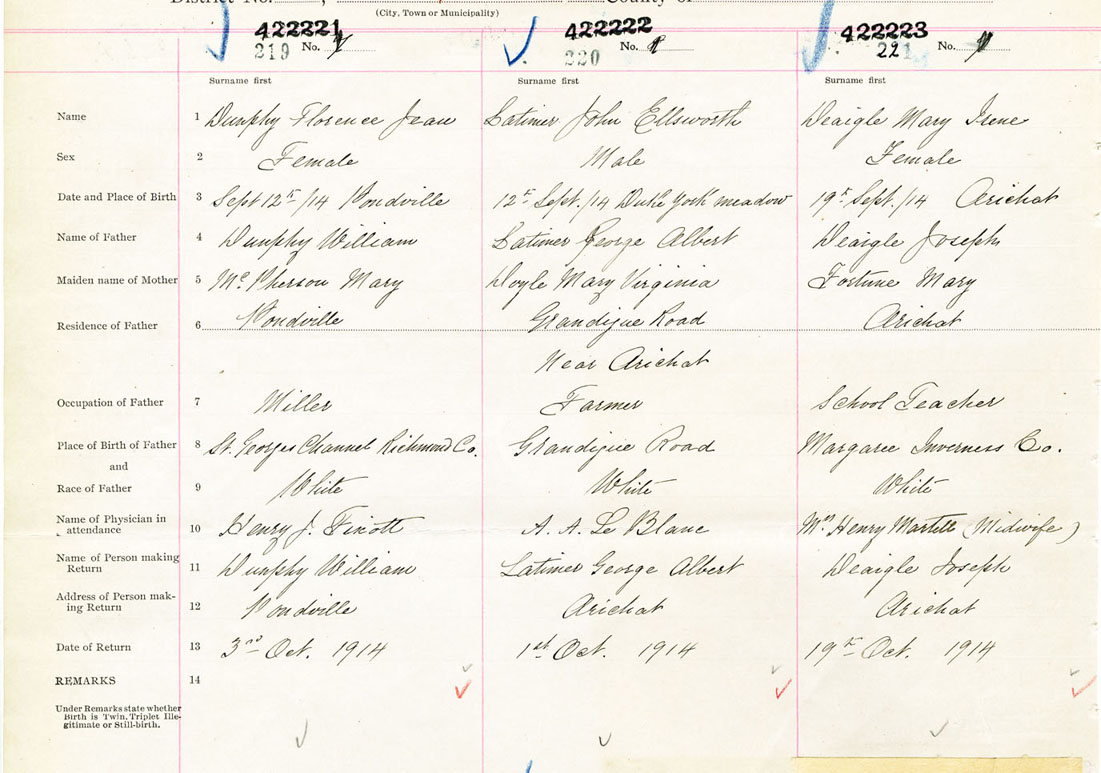 District No. , County of
(City, Town or Municipality)
422221 422222 422223
219 No. 220 No. 221 No.
Surname first Surname first Surname first
Name 1 Dunphy Florence Jean Latimer John Ellsworth Deaigle Mary Irene
Sex 2 Female Male Female
Date and Place of Birth 3 Sept 12th /14 Pondville 12th Sept. /14 Duke York meadow 19th Sept. /14 Arichat
Name of Father 4 Dunphy William Latimer George Albert Deaigle Joseph
Maiden name of Mother 5 Mc Pherson Mary Doyle Mary Virginia Fortune Mary
Residence of Father 6 Pondville Grandique Road Arichat
Near Arichat
Occupation of Father 7 Miller Farmer School Teacher
Place of Birth of Father 8 St. Georges Channel Richmond Co. Grandique Road Margaree Inverness Co.
and
Race of Father 9 White White White
Name of Physician in
attendance 10 Henry J. A. A. Le Blanc Mrs Henry Martell (Midwife)
Name of Person making
Return 11 Dunphy William Latimer George Albert Deaigle Joseph
Address of Person mak-
ing Return 12 Pondville Arichat Arichat
Date of Return 13 3rd Oct. 1914 1st Oct. 1914 19th Oct. 1914
REMARKS 14
Under Remarks state whether
Birth is Twin, Triplet Ille-
gitimate or Still-birth.